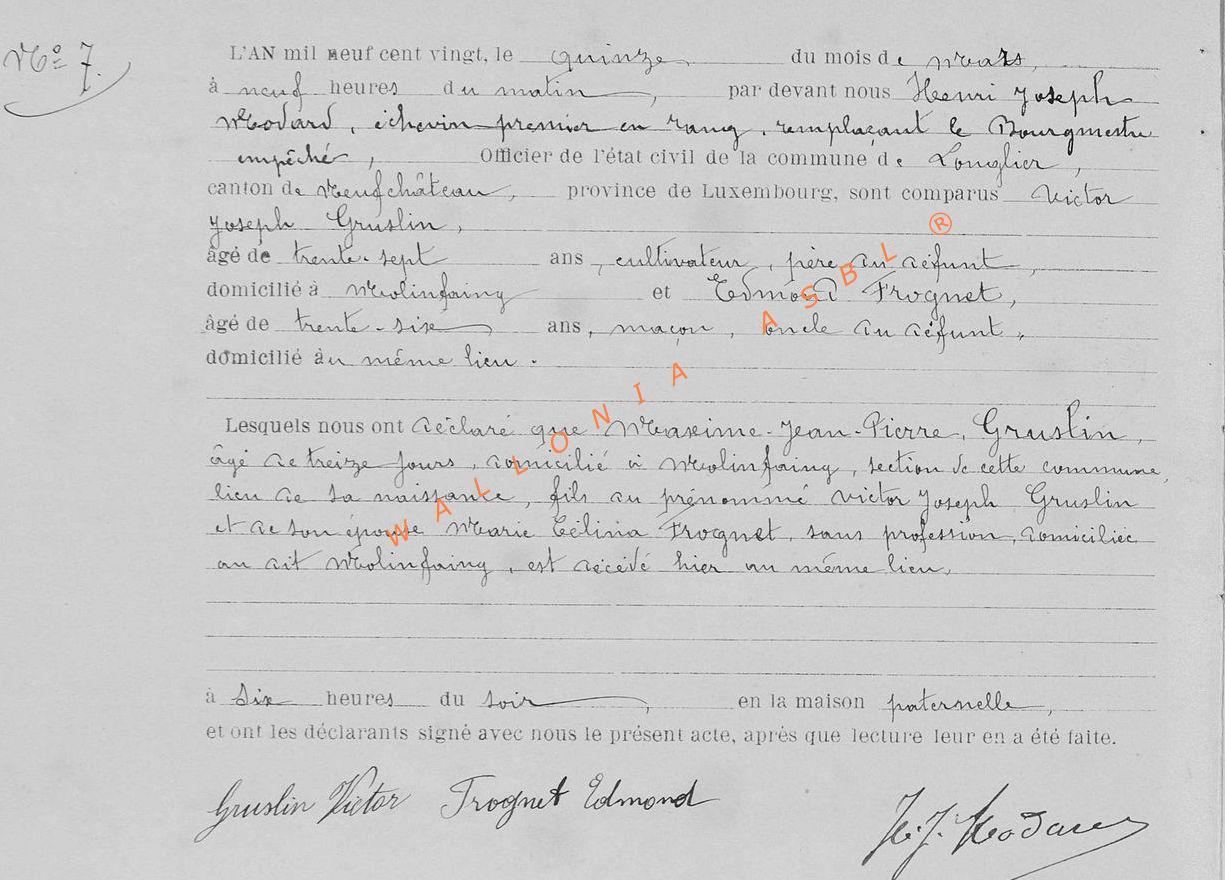 No 7.
L'AN mil neuf cent vingt, le quinze du mois de Mars,
à neuf heures du matin, par devant nous Henri Joseph
Modard, échevin premier en rang, remplaçant le Bourgmestre
empêché, Officier de l'état civil de la commune de Longlier,
canton de Neufchâteau, province de Luxembourg, sont comparus Victor
Joseph Gruslin,
âgé de trente-sept ans, cultivateur, père du défunt,
domicilié à Molinfaing et Edmond Frognet,
âgé de trente-six ans, maçon, oncle du défunt,
domicilié au même lieu.
Lesquels nous ont déclaré que Maxime-Jean-Pierre, Gruslin,
âgé de treize jours, domicilié à Molinfaing, section de cette commune,
lieu de sa naissance, fils du prénommé Victor Joseph Gruslin
et de son épouse Marie Célina Frognet, sans profession, domiciliée
au dit Molinfaing, est décédé hier au même lieu,
à six heures du soir, en la maison paternelle,
et ont les déclarants signé avec nous le présent acte, après que lecture leur en a été faite.
Gruslin Victor Frognet Edmond H.J. Modard
WALLONIA ASBL ®